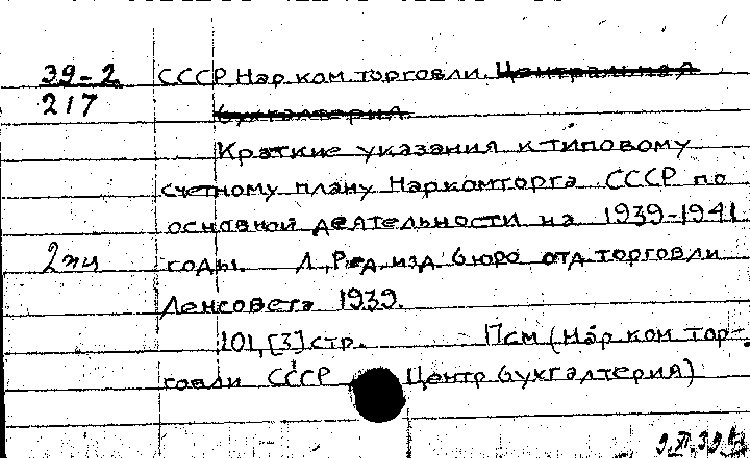 39-2 СССР. Нар. ком. торговли. Центральная
217 бухгалтерия
Краткие указания к типовому
счетному плану Наркомторга СССР по
основной деятельности на 1939-1941
2 эк годы. Л., Ред. изд. бюро отд. торговли
Ленсовета 1939.
101, [3] стр. 17см (Нар. ком. тор-
говли СССР Центр бухгалтерия)